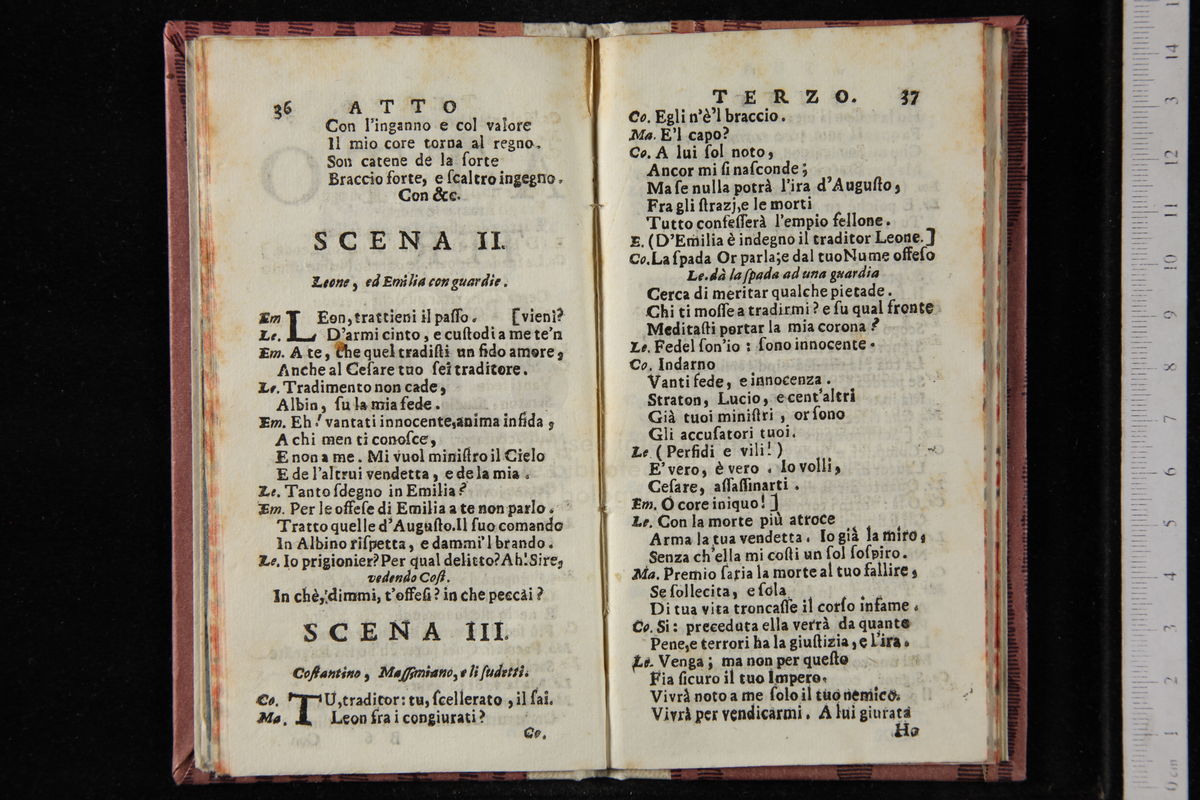 36 ATTO
Con l'inganno e col valore
Il mio core torna al regno.
Son catene de la ſorte
Braccio forte, e ſcaltro ingegno.
Con &c.
SCENA II.
Leone, ed Emilia con guardie.
Em LEon, trattieni il paſſo. [vieni?
Le. D'armi cinto, e cuſtodi a me te'n
Em. A te, che quel tradiſti un fido amore,
Anche al Ceſare tuo ſei traditore.
Le. Tradimento non cade,
Albin, ſu la mia fede.
Em. Eh! vantati innocente, anima infida,
A chi men ti conoſce,
E non a me. Mi vuol miniſtro il Cielo
E de l'altrui vendetta, e de la mia.
Le. Tanto ſdegno in Emilia?
Em. Per le offeſe di Emilia a te non parlo.
Tratto quelle d'Auguſto. Il ſuo comando
In Albino riſpetta, e dammi'l brando.
Le. Io prigionier? Per qual delitto? Ah! Sire,
vedendo Coſt.
In chè, dimmi, t'offeſi? in che peccai?
SCENA III.
Coſtantino, Maſſimiano, e li ſudetti.
Co. TU, traditor: tu, ſcellerato, il ſai.
Ma. Leon fra i congiurati?
Co.
TERZO. 37
Co. Egli n'è'l braccio.
Ma. E'l capo?
Co. A lui ſol noto,
Ancor mi ſi naſconde;
Ma ſe nulla potrà l'ira d'Auguſto,
Fra gli ſtrazj, e le morti
Tutto confeſſerà l'empio fellone.
E. (D'Emilia è indegno il traditor Leone.]
Co. La ſpada Or parla; e dal tuo Nume offeſo
Le. dà la ſpada ad una guardia
Cerca di meritar qualche pietade.
Chi ti moſſe a tradirmi? e ſu qual fronte
Meditaſti portar la mia corona?
Le. Fedel ſon'io: ſono innocente.
Co. Indarno
Vanti fede, e innocenza.
Straton, Lucio, e cent'altri
Già tuoi miniſtri, or ſono
Gli accuſatori tuoi.
Le (Perfidi e vili!)
E' vero, è vero. Io volli,
Ceſare, aſſaſſinarti.
Em. O core iniquo!]
Le. Con la morte più atroce
Arma la tua vendetta. Io già la miro,
Senza ch'ella mi coſti un ſol ſoſpiro.
Ma. Premio ſaria la morte al tuo fallire,
Se ſollecita, e ſola
Di tua vita troncaſſe il corſo infame.
Co. Si: preceduta ella verrà da quante
Pene, e terrori ha la giuſtizia, e l'ira.
Le. Venga; ma non per queſto
Fia ſicuro il tuo Impero.
Vivrà noto a me ſolo il tuo nemico.
Vivrà per vendicarmi. A lui giurata
Ho